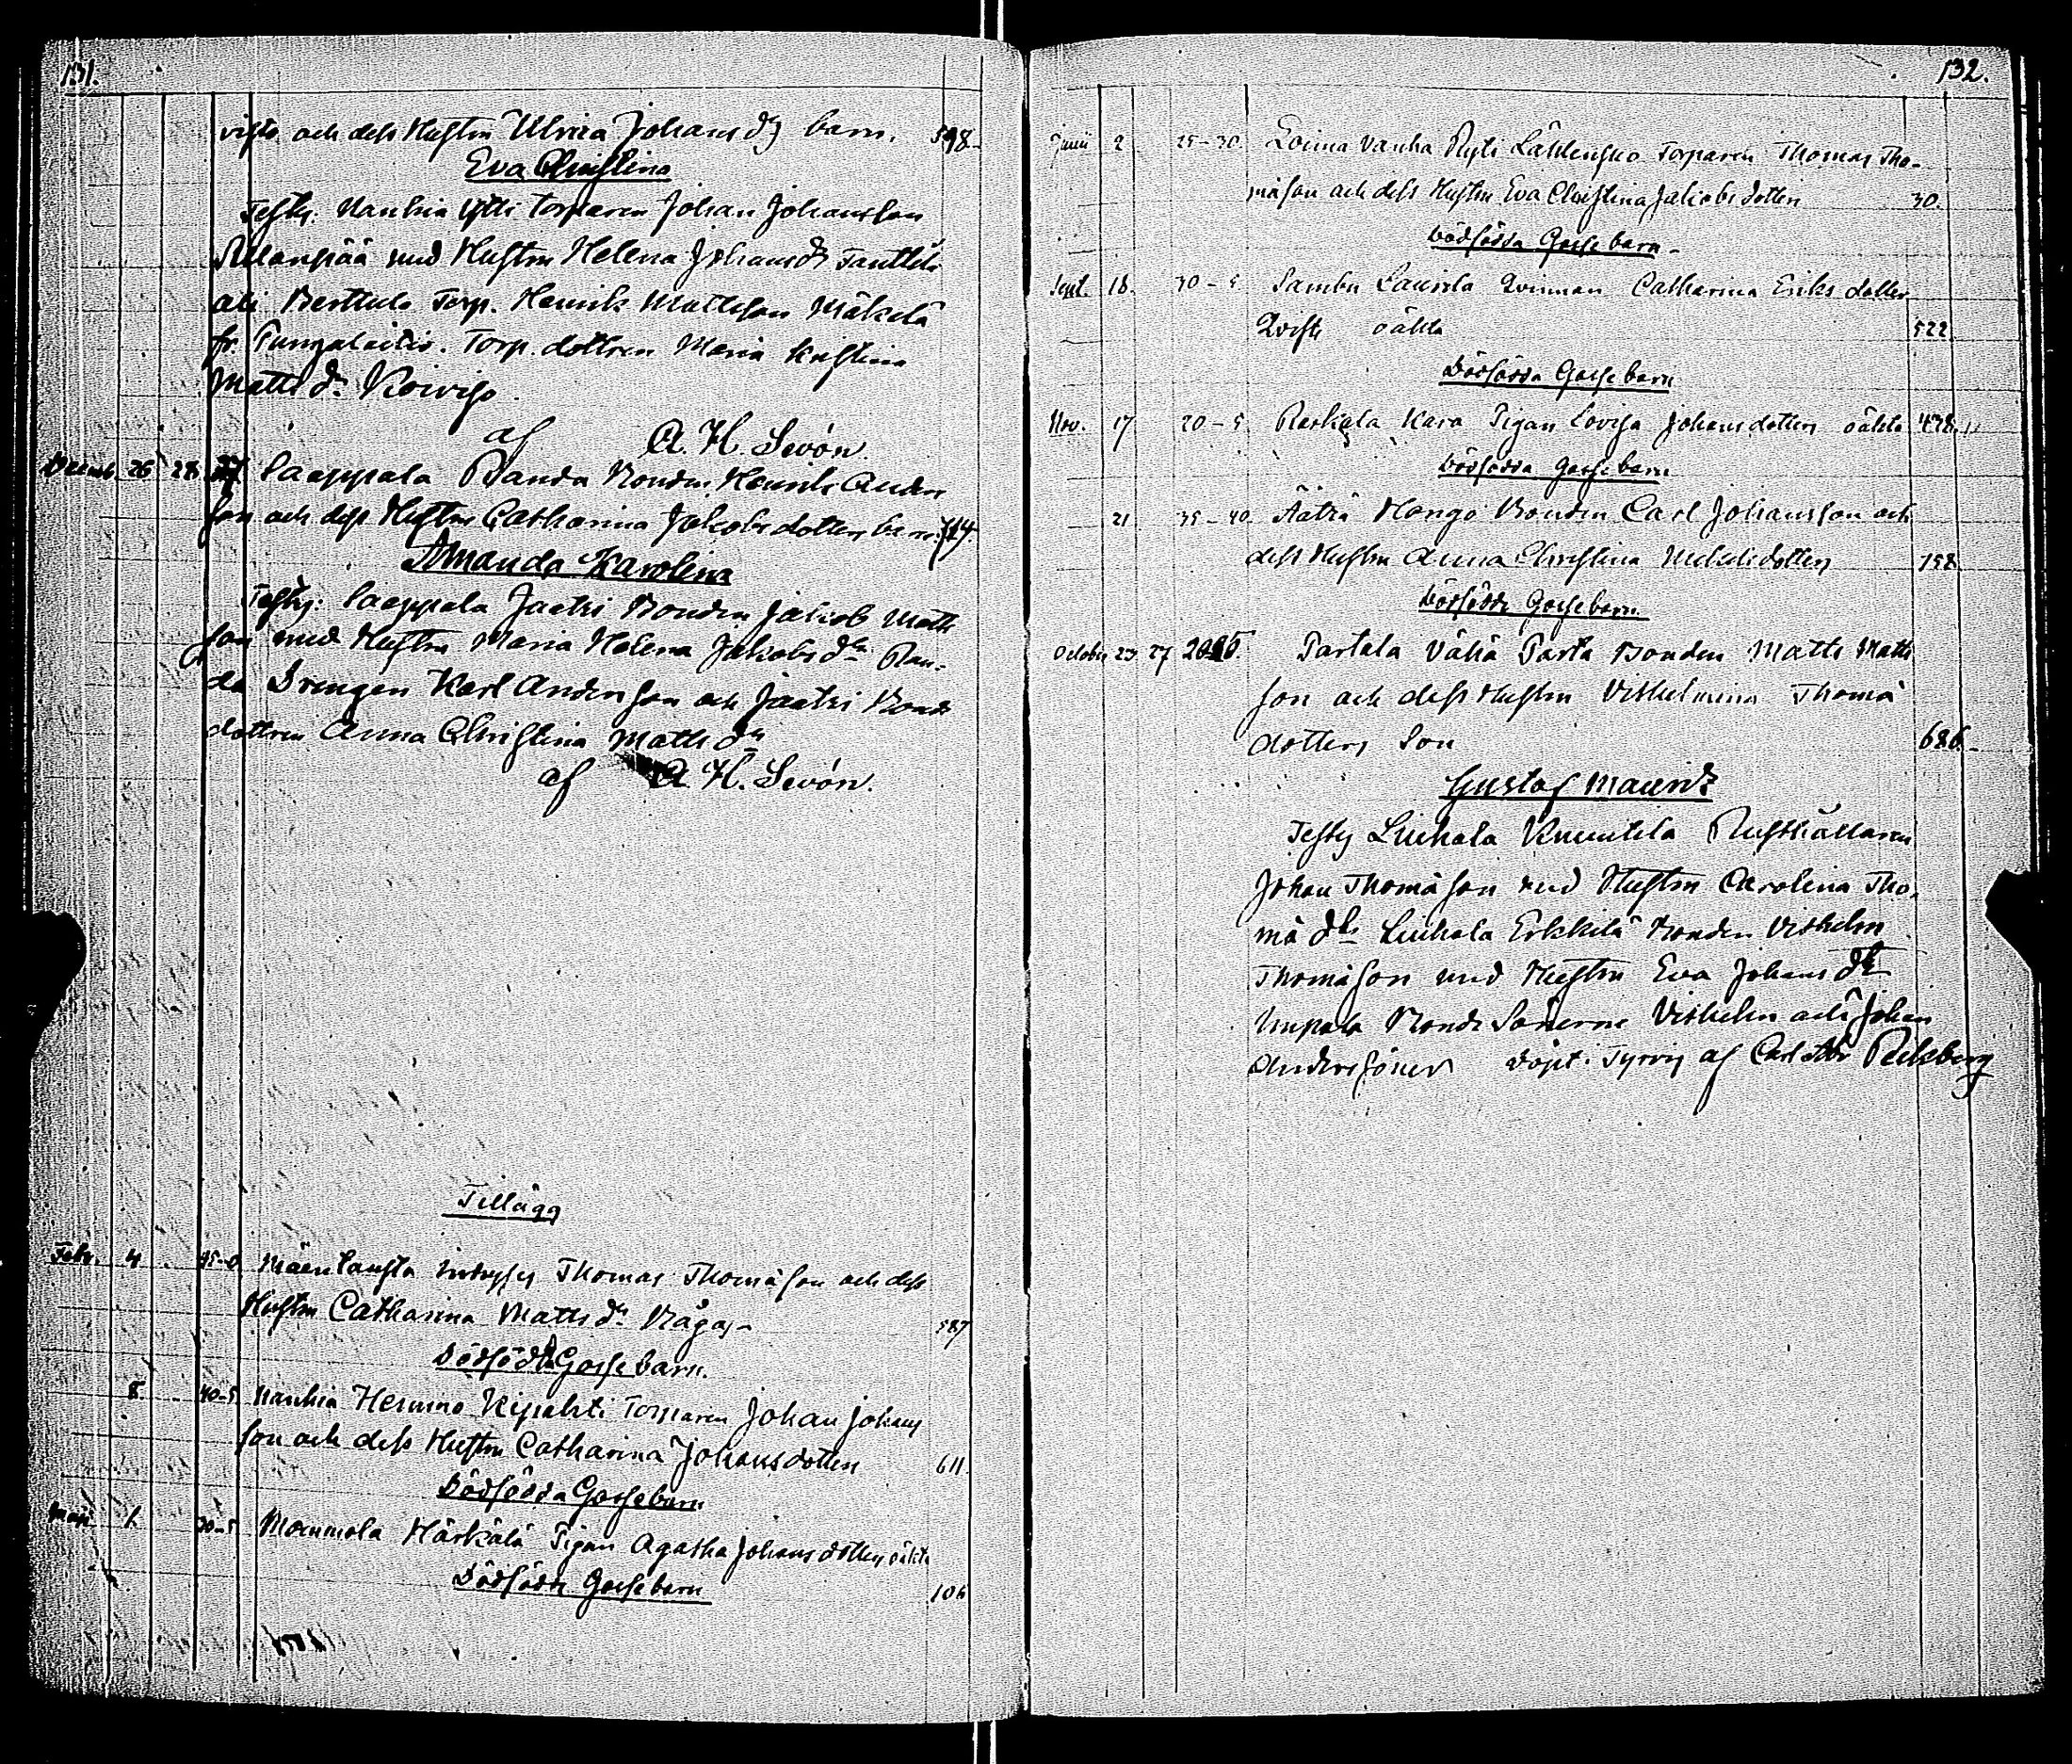 131.
och dess Hustru Ulrica Johansdrs barn. 598
Eva Christina
Testes: Nanhia Torparen Johan Johansson
med Hustru Helena Johansdr
Torp. Henrik Mattsson Mäkelä
fr. Torp. dottren Maria
Matts dr.
af A. H. Levón.
Decemb. 26 28 Saappala Randa Bonden Henrik Anders
son och dess Hustru Catharina Jakobsdotters barn. 714
Amanda Karolina
Testes: Saappala Jaatsi Bonden Jakob Matts
son med Hustru Maria Helena Jakobs dr. Ran-
da Drengen Karl Andersson och Jaatsi Bonde
dottren Anna Christina Matts dr
af A. H. Levón.
Tillägg
Febr. 4 Thomas Thomasson och dess
Hustru Catharina Matts dr. 587
Dödfödt Gossebarn.
8. 40-5 Nanhia Hermno Torparen Johan Johans
son och dess Hustru Catharina Johansdotter 611.
Dödfödda Gossebarn
Maji 1. 20-5 Mommola Härkälä Pigan Agatha Johansdotters oäkta
Dödfödde Gossebarn 106
132.
Junii 2 25-30. Loima Vanha Torparen Thomas Tho-
masson och dess Hustru Eva Christina Jakobsdotters 30.
Dödfödda Gossebarn
Sept. 18. 30-5 Sambu Laurila Qvinnan Catharina Eriksdotter
Qvists oäkta 522
Dödfödda Gossebarn
Nov. 17 20-5 Raskala Kara Pigan Lovisa Johansdotters oäkta 478.
Dödfödda Gossebarn
21 35-40. Äätsä Hongo Bonden Carl Johansson och
dess Hustru Anna Christina Mickelsdotters 158
Dödfödde Gossebarn
October 23 27 Partala Vähä Parta Bonden Matts Matts
son och dess Hustru Vilhelmina Thoma
dotters Son 686.
Gustaf Mauritz
Testes Liuhala Knuutila Rusthållaren
Johan Thomasson med Hustru Carolina Tho-
mä dr Liuhala Erkkilä Bonden Vilhelm
Thomasson med Hustru Eva Johans dr
Bonde Sönerne Vilhelm och Johan
Anderssöner döpt i Tyrvis af Carl